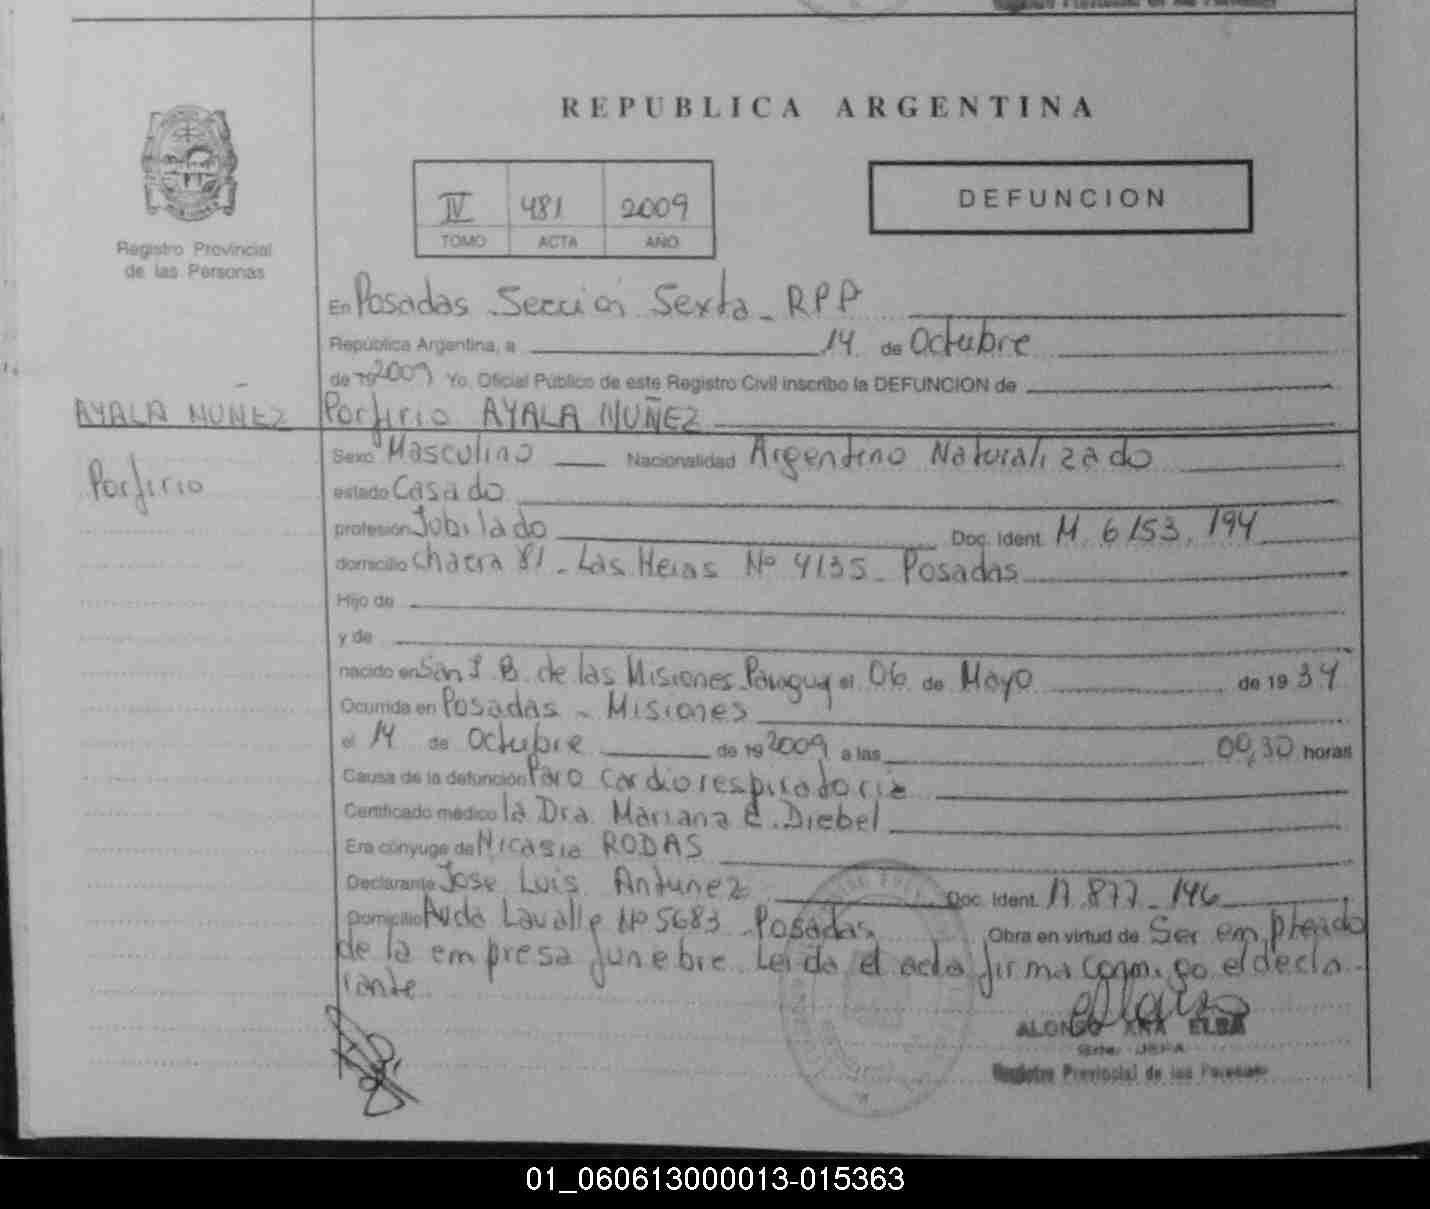 REPUBLICA ARGENTINA
IV 481 2009
TOMO ACTA AÑO
DEFUNCION
Registro Provincial
de las Personas
En Posadas Sección Sexta - RPP
República Argentina, a 14 de Octubre
de 19 2009 Yo, Oficial Público de este Registro Civil inscribo la DEFUNCION de
AYALA NUÑEZ Porfirio AYALA NUÑEZ
Porfirio
Sexo Masculino Nacionalidad Argentino Naturalizado
estado Casado
profesión Jubilado Doc. Ident. M. 6153.194
domicilio chacra 81 - Las Heras Nº 4135 - Posadas
Hijo de
y de
nacido en San J. B. de las Misiones Paraguay el 06 de Mayo de 19 34
Ocurrida en Posadas - Misiones
el 14 de Octubre de 19 2009 a las 00,30 horas
Causa de la defunción Paro cardiorespiratorio
Certificado médico la Dra. Mariana E. Diebel
Era cónyuge de Nicasia RODAS
Declarante Jose Luis Antunez Doc. Ident. 17.877.146
Domicilio Avda Lavalle Nº 5683 - Posadas Obra en virtud de Ser empleado
de la empresa funebre. Leida el acta firma conmigo el decla
rante
ALONSO ANA ELBA
JEFA
Registro Provincial de las Personas
01_060613000013-015363